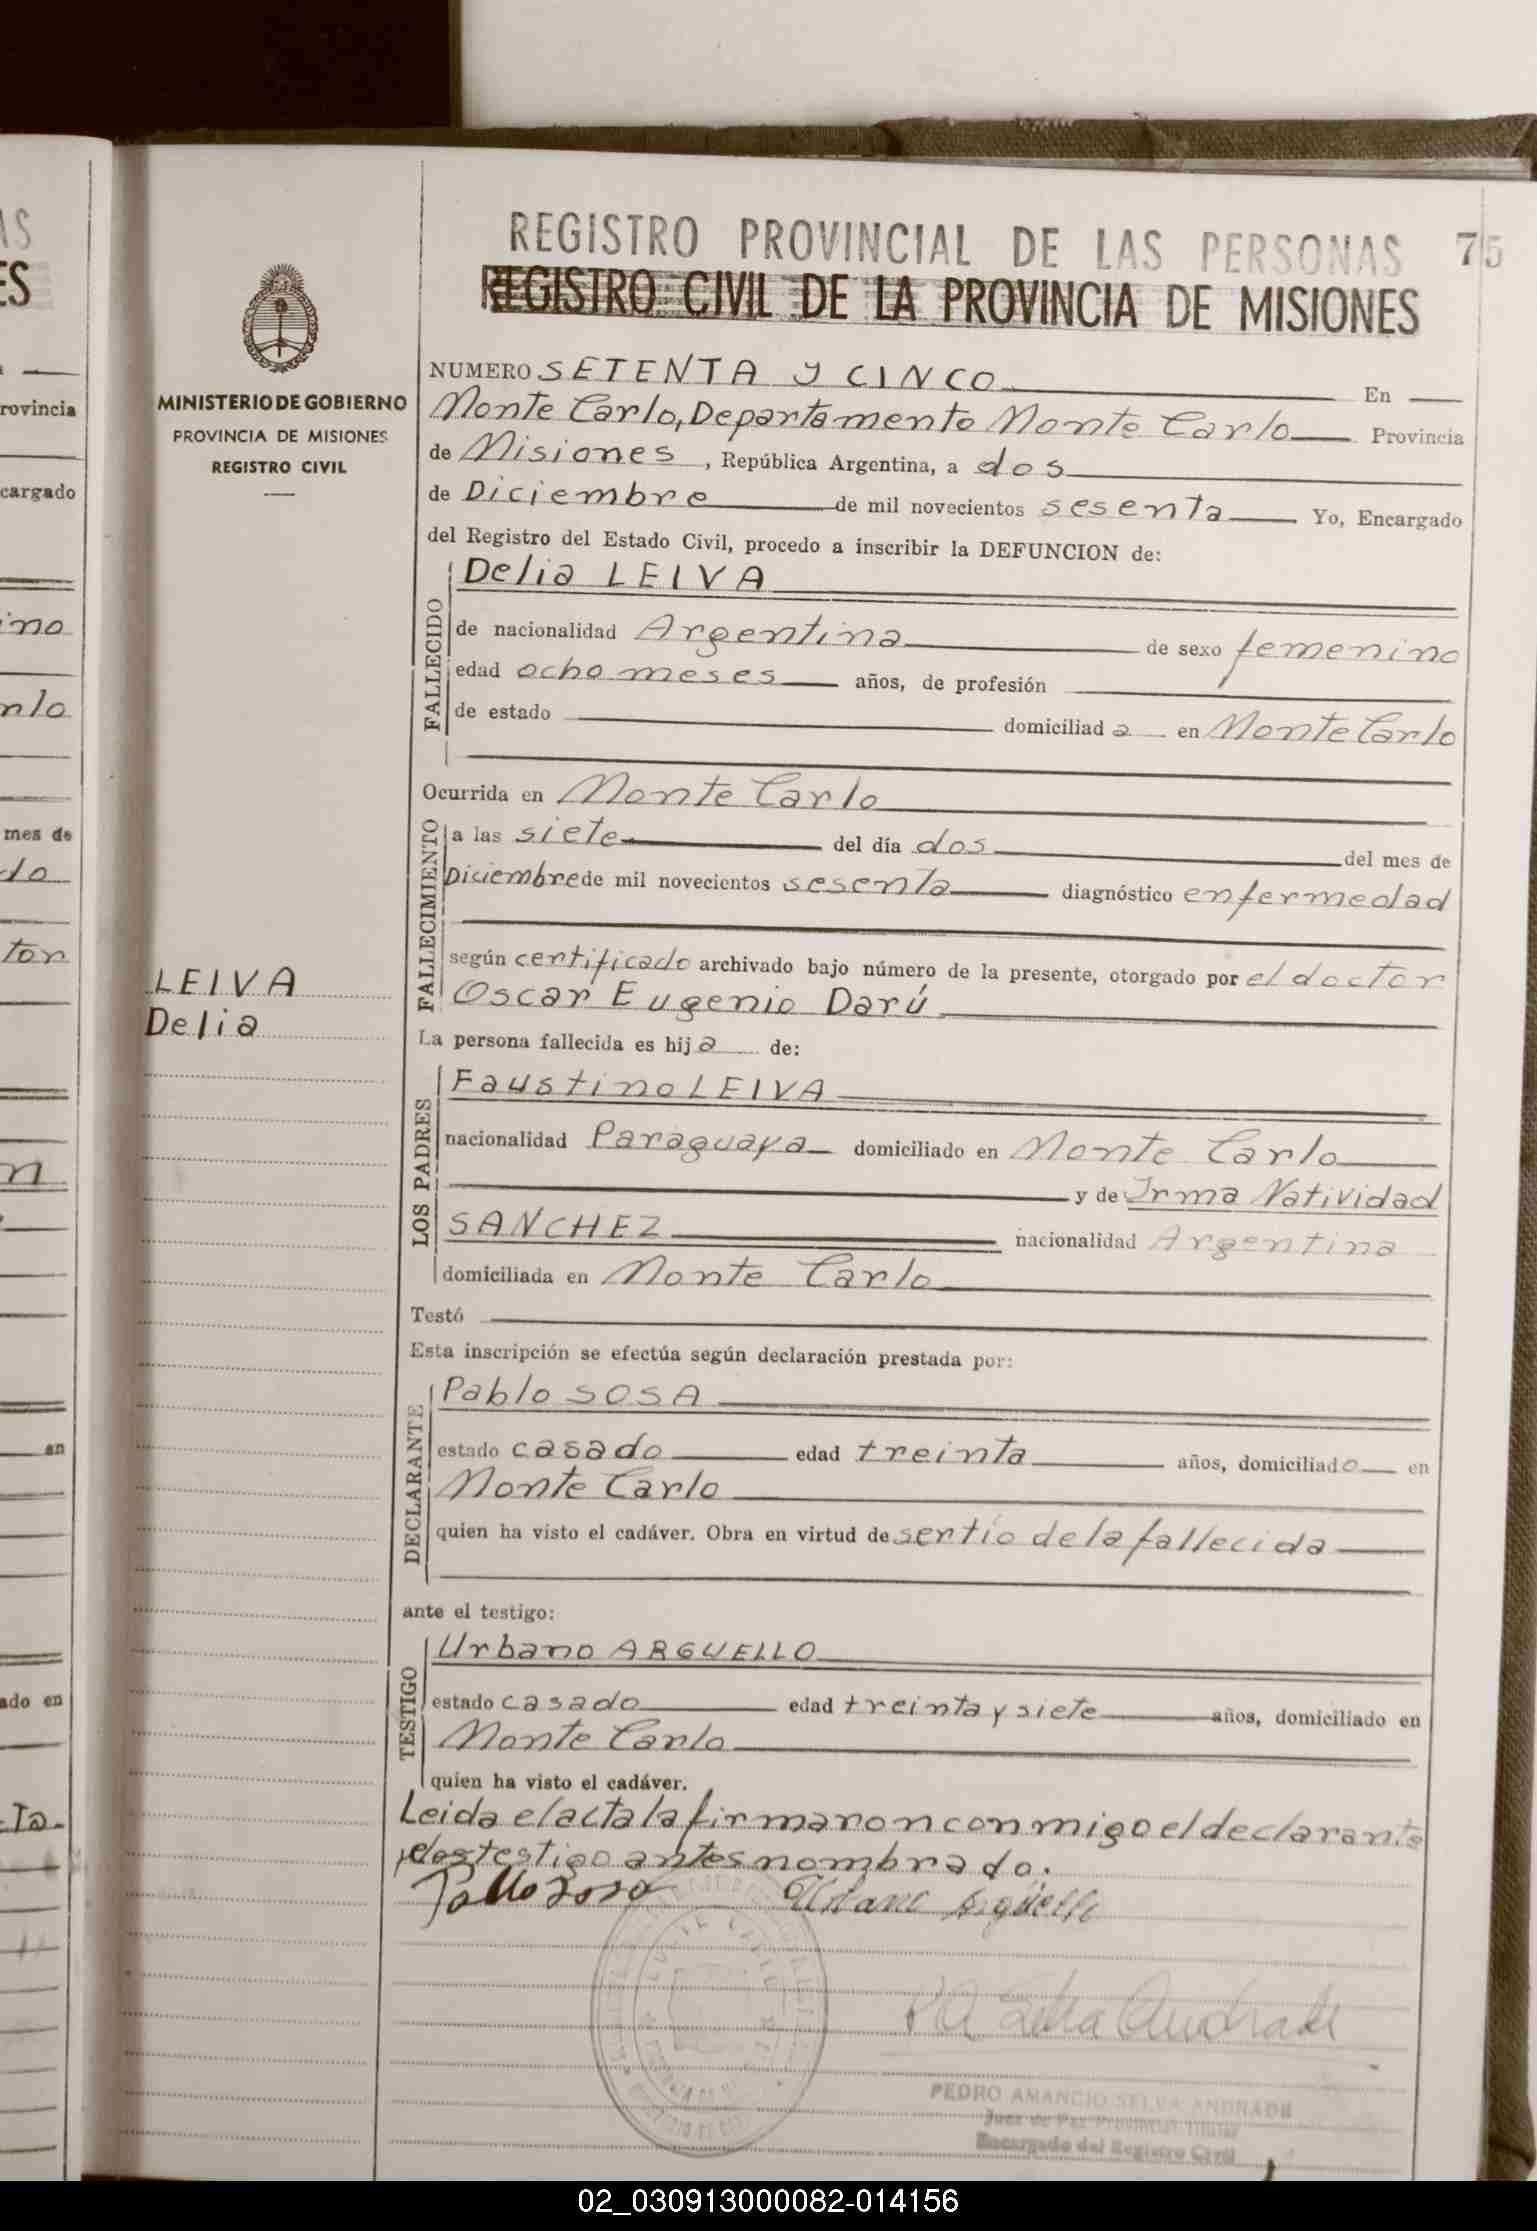 AS
ES
rovincia
cargado
ino
nlo
mes de
do
tor
n
en
ado en
Ta
REGISTRO PROVINCIAL DE LAS PERSONAS 75
REGISTRO CIVIL DE LA PROVINCIA DE MISIONES
MINISTERIO DE GOBIERNO
PROVINCIA DE MISIONES
REGISTRO CIVIL
LEIVA
Delia
NUMERO SETENTA y CINCO En
Monte Carlo, Departamento Monte Carlo Provincia
de Misiones, República Argentina, a dos
de Diciembre de mil novecientos sesenta Yo, Encargado
del Registro del Estado Civil, procedo a inscribir la DEFUNCION de:
FALLECIDO
Delia LEIVA
de nacionalidad Argentina de sexo femenino
edad ocho meses años, de profesión
de estado domiciliad a en Monte Carlo
Ocurrida en Monte Carlo
FALLECIMIENTO
a las siete del día dos del mes de
Diciembre de mil novecientos sesenta diagnóstico enfermedad
según certificado archivado bajo número de la presente, otorgado por el doctor
Oscar Eugenio Darú
La persona fallecida es hij a de:
LOS PADRES
Faustino LEIVA
nacionalidad Paraguaya domiciliado en Monte Carlo
y de Irma Natividad
SANCHEZ nacionalidad Argentina
domiciliada en Monte Carlo
Testó
Esta inscripción se efectúa según declaración prestada por:
DECLARANTE
Pablo SOSA
estado casado edad treinta años, domiciliado en
Monte Carlo
quien ha visto el cadáver. Obra en virtud de ser tío de la fallecida
ante el testigo:
TESTIGO
Urbano ARGUELLO
estado casado edad treinta y siete años, domiciliado en
Monte Carlo
quien ha visto el cadáver.
Leida el acta la firmaron conmigo el declarante
testigo antes nombrado.
Pablo Sosa Urbano Argüello
P A Selva Andrade
PEDRO AMANCIO SELVA ANDRADE
Juez de Paz Provincial Titular
Encargado del Registro Civil
02_030913000082-014156